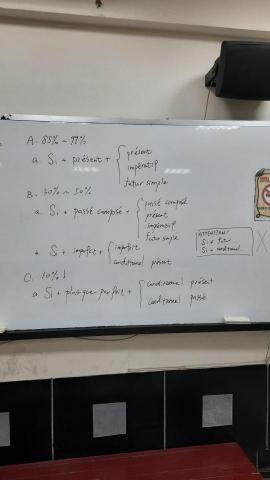 A. 85% ~ 99%
a. Si + présent + { présent
impératif
futur simple
B. 50%
a. Si + passé composé + { passé composé
présent
impératif
futur simple
ATTENTION:
Si + futur...
Si + conditionnel...
Si + imparfait + { imparfait
conditionnel présent
C. 10% ↓
a. Si + plus-que-parfait + { conditionnel présent
conditionnel passé